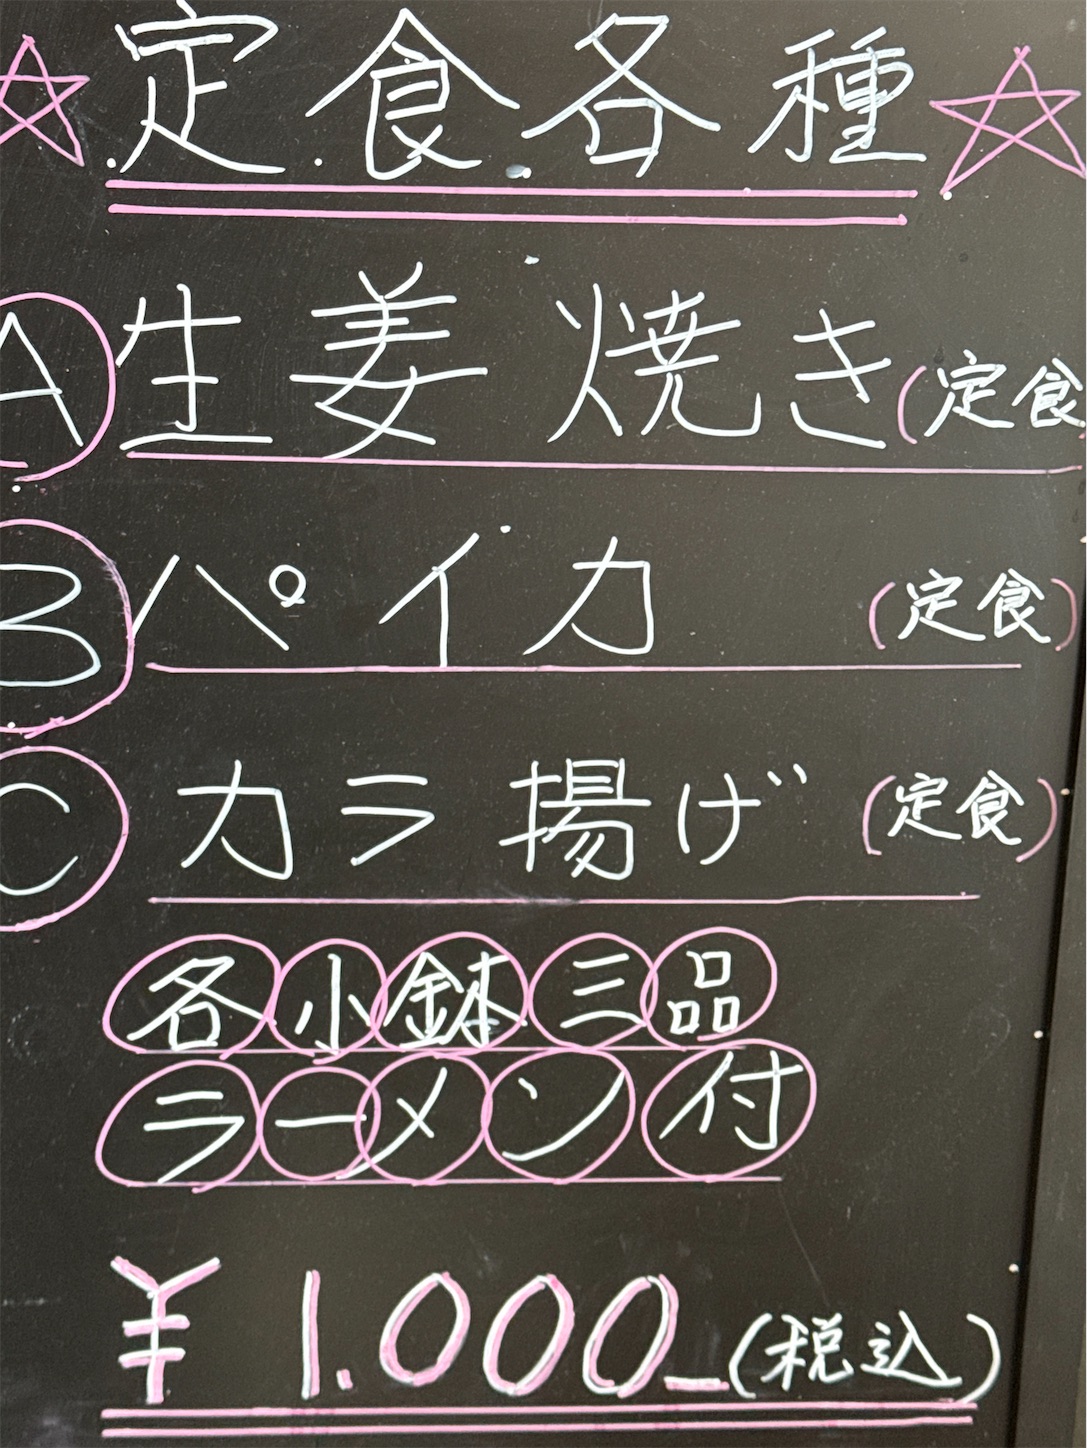 ☆定食各種☆
Ⓐ生姜焼き(定食
Ⓑパイカ(定食)
Ⓒカラ揚げ(定食)
各小鉢三品
ラーメン付
¥1.000_(税込)